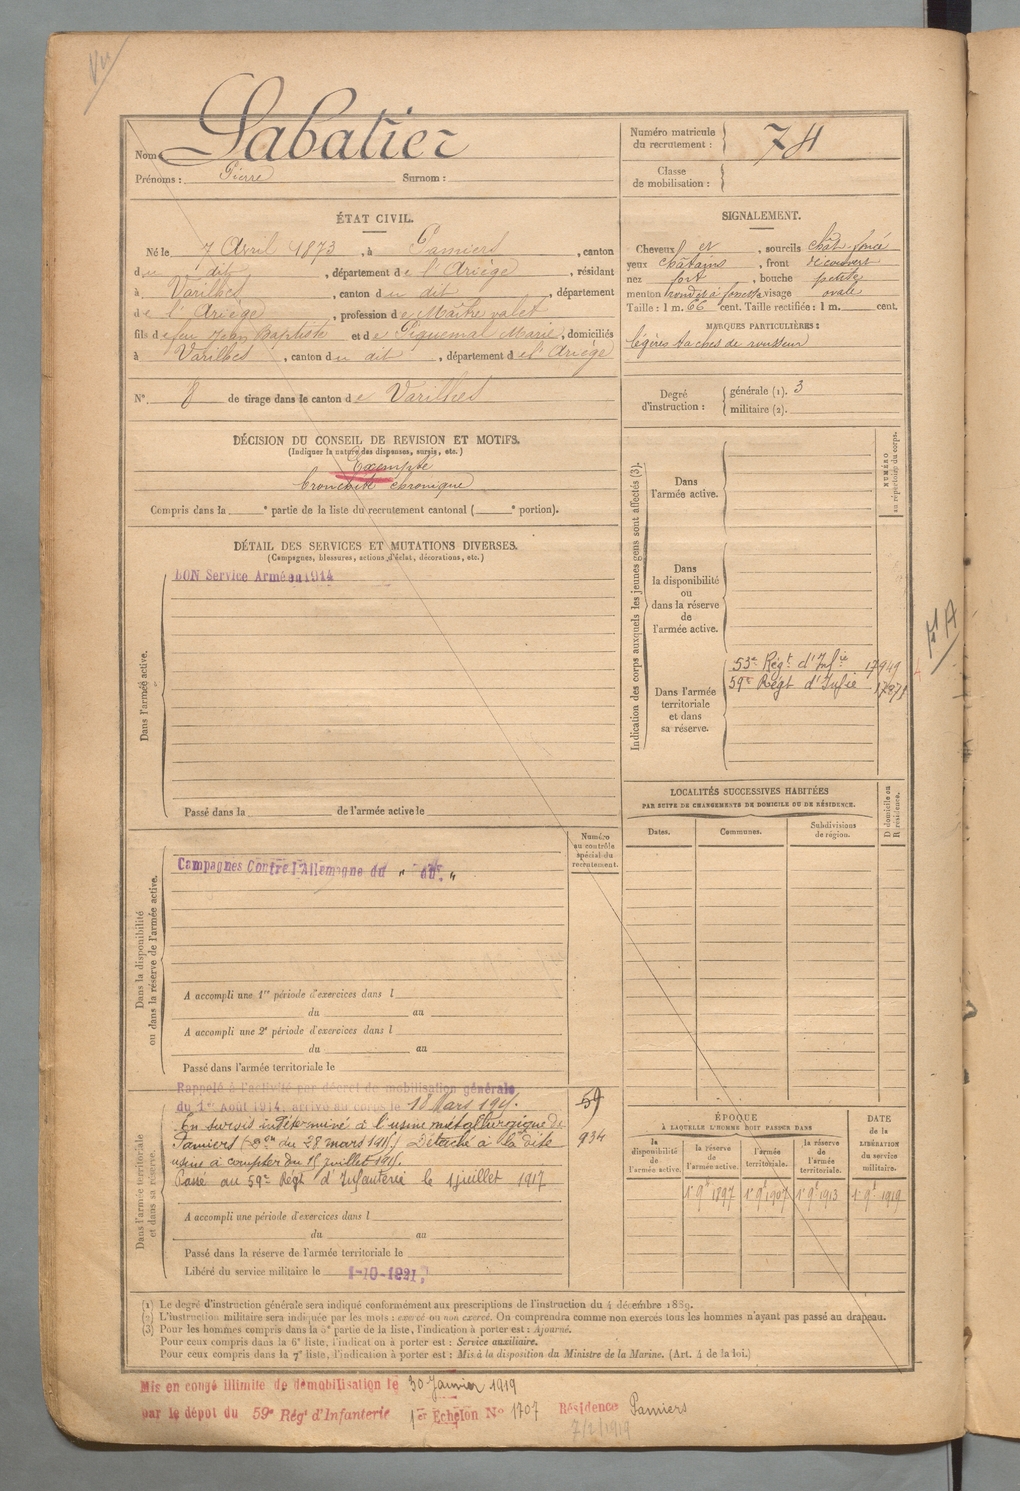 Vu
Nom Sabatier
Prénoms : Pierre Surnom :
Numéro matricule du recrutement : 74
Classe de mobilisation :
ÉTAT CIVIL.
Né le 7 Avril 1873, à Pamiers, canton
du dit, département de l'Ariège, résidant
à Varilhes, canton du dit, département
de l'Ariège, profession de Maître valet
fils de feu Jean Baptiste et de Piquemal Marie, domiciliés
à Varilhes, canton du dit, département de l'Ariège
N° 8 de tirage dans le canton de Varilhes
SIGNALEMENT.
Cheveux et, sourcils chât-foncé
yeux châtains, front découvert
nez fort, bouche petite
menton rond et à fossette visage ovale
Taille : 1 m. 66 cent. Taille rectifiée : 1 m. cent.
MARQUES PARTICULIÈRES :
légères taches de rousseur
Degré d'instruction : générale (1). 3
militaire (2).
DÉCISION DU CONSEIL DE REVISION ET MOTIFS.
(Indiquer la nature des dispenses, sursis, etc.)
Exempté
bronchite chronique
Compris dans la e partie de la liste du recrutement cantonal ( e portion).
DÉTAIL DES SERVICES ET MUTATIONS DIVERSES.
(Campagnes, blessures, actions d'éclat, décorations, etc.)
Dans l'armée active.
BON Service Armé en 1914
Passé dans la de l'armée active le
Indication des corps auxquels les jeunes gens sont affectés (3).
NUMÉRO au répertoire du corps.
Dans l'armée active.
Dans la disponibilité ou dans la réserve de l'armée active.
Dans l'armée territoriale et dans sa réserve.
53e Régt d'Infie 17949
59e Régt d'Infie
LOCALITÉS SUCCESSIVES HABITÉES
PAR SUITE DE CHANGEMENTS DE DOMICILE OU DE RÉSIDENCE.
D domicile ou R résidence.
Dates. Communes. Subdivisions de région.
Dans la disponibilité ou dans la réserve de l'armée active.
Numéro au contrôle spécial du recrutement.
Campagnes Contre l'Allemagne du " au "
A accompli une 1re période d'exercices dans l
du au
A accompli une 2e période d'exercices dans l
du au
Passé dans l'armée territoriale le
Dans l'armée territoriale et dans sa réserve.
Rappelé à l'activité par décret de mobilisation générale
du 1er Août 1914, arrivé au corps le 18 Mars 1915.
En sursis indéterminé à l'usine métallurgique de
Pamiers du 28 mars 1915 Détaché à la dite
usine à compter du 15 juillet 1915.
Passé au 59e Régt d'Infanterie le 1 juillet 1917
59
934
A accompli une période d'exercices dans l
du au
Passé dans la réserve de l'armée territoriale le
Libéré du service militaire le 1-10-1921
ÉPOQUE
À LAQUELLE L'HOMME DOIT PASSER DANS
la disponibilité de l'armée active.
la réserve de l'armée active.
l'armée territoriale.
la réserve de l'armée territoriale.
DATE de la LIBÉRATION du service militaire.
1er 9bre 1897 1er 9bre 1907 1er 9bre 1913 1er 9bre 1919
(1) Le degré d'instruction générale sera indiqué conformément aux prescriptions de l'instruction du 4 décembre 1889.
(2) L'instruction militaire sera indiquée par les mots : exercé ou non exercé. On comprendra comme non exercés tous les hommes n'ayant pas passé au drapeau.
(3) Pour les hommes compris dans la 5e partie de la liste, l'indication à porter est : Ajourné.
Pour ceux compris dans la 6e liste, l'indication à porter est : Service auxiliaire.
Pour ceux compris dans la 7e liste, l'indication à porter est : Mis à la disposition du Ministre de la Marine. (Art. 4 de la loi.)
Mis en congé illimité de démobilisation le 30 Janvier 1919
par le dépôt du 59e Régt d'Infanterie 1er Echelon N° 1707 Résidence Pamiers
7/2/1919